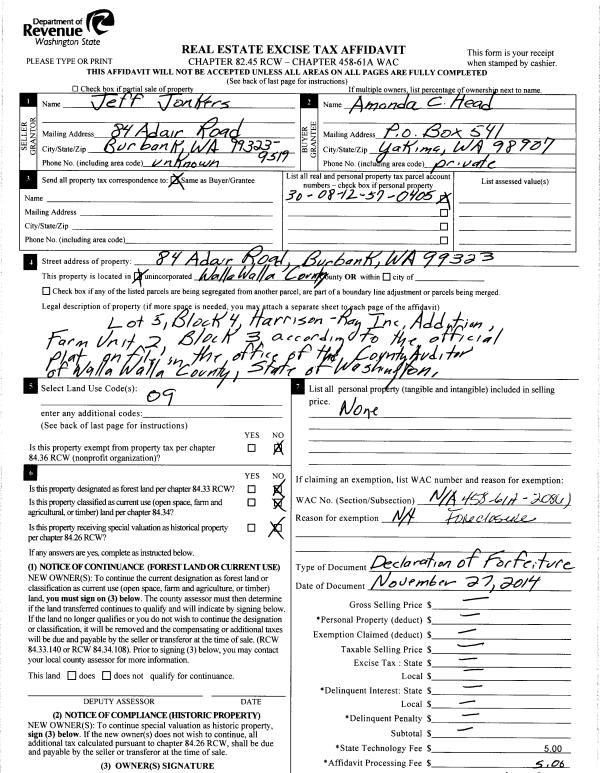 Department of
Revenue
Washington State
PLEASE TYPE OR PRINT
REAL ESTATE EXCISE TAX AFFIDAVIT
CHAPTER 82.45 RCW – CHAPTER 458-61A WAC
This form is your receipt
when stamped by cashier.
THIS AFFIDAVIT WILL NOT BE ACCEPTED UNLESS ALL AREAS ON ALL PAGES ARE FULLY COMPLETED
(See back of last page for instructions)
Check box if partial sale of property
If multiple owners, list percentage of ownership next to name.
1 Name Jeff Jonkers
SELLER
GRANTOR
Mailing Address 84 Adair Road
City/State/Zip Burbank, WA 99323-9519
Phone No. (including area code) unknown
2 Name Amanda C. Head
BUYER
GRANTEE
Mailing Address P.O. Box 541
City/State/Zip Yakima, WA 98907
Phone No. (including area code) private
3 Send all property tax correspondence to: Same as Buyer/Grantee
Name
Mailing Address
City/State/Zip
Phone No. (including area code)
List all real and personal property tax parcel account
numbers – check box if personal property
30-08-12-57-0405
List assessed value(s)
4 Street address of property: 84 Adair Road, Burbank, WA 99323
This property is located in unincorporated Walla Walla County County OR within city of
Check box if any of the listed parcels are being segregated from another parcel, are part of a boundary line adjustment or parcels being merged.
Legal description of property (if more space is needed, you may attach a separate sheet to each page of the affidavit)
Lot 5, Block 4, Harrison-Ray Inc, Addition,
Farm Unit 2, Block 3 according to the official
plat on file in the office of the County Auditor
of Walla Walla County, State of Washington.
5 Select Land Use Code(s):
09
enter any additional codes:
(See back of last page for instructions)
YES NO
Is this property exempt from property tax per chapter
84.36 RCW (nonprofit organization)?
6
YES NO
Is this property designated as forest land per chapter 84.33 RCW?
Is this property classified as current use (open space, farm and
agricultural, or timber) land per chapter 84.34?
Is this property receiving special valuation as historical property
per chapter 84.26 RCW?
If any answers are yes, complete as instructed below.
(1) NOTICE OF CONTINUANCE (FOREST LAND OR CURRENT USE)
NEW OWNER(S): To continue the current designation as forest land or
classification as current use (open space, farm and agriculture, or timber)
land, you must sign on (3) below. The county assessor must then determine
if the land transferred continues to qualify and will indicate by signing below.
If the land no longer qualifies or you do not wish to continue the designation
or classification, it will be removed and the compensating or additional taxes
will be due and payable by the seller or transferor at the time of sale. (RCW
84.33.140 or RCW 84.34.108). Prior to signing (3) below, you may contact
your local county assessor for more information.
This land does does not qualify for continuance.
DEPUTY ASSESSOR DATE
(2) NOTICE OF COMPLIANCE (HISTORIC PROPERTY)
NEW OWNER(S): To continue special valuation as historic property,
sign (3) below. If the new owner(s) does not wish to continue, all
additional tax calculated pursuant to chapter 84.26 RCW, shall be due
and payable by the seller or transferor at the time of sale.
(3) OWNER(S) SIGNATURE
7 List all personal property (tangible and intangible) included in selling
price.
None
If claiming an exemption, list WAC number and reason for exemption:
WAC No. (Section/Subsection) N/A 458-61A-208(
Reason for exemption N/A Foreclosure
Type of Document Declaration of Forfeiture
Date of Document November 27, 2014
Gross Selling Price $ —
*Personal Property (deduct) $ —
Exemption Claimed (deduct) $ —
Taxable Selling Price $ —
Excise Tax : State $ —
Local $ —
*Delinquent Interest: State $ —
Local $ —
*Delinquent Penalty $ —
Subtotal $ —
*State Technology Fee $ 5.00
*Affidavit Processing Fee $ 5.06